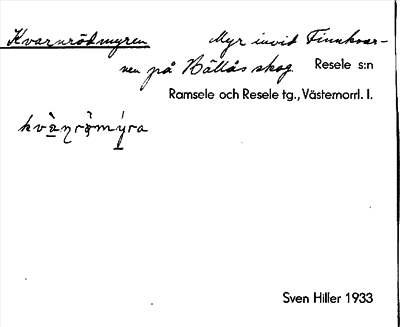 Kvarnrödmyren Myr invid Finnkvar-
nen på Bällås skog. Resele s:n
Ramsele och Resele tg., Västernorrl. l.
kvὰ̱ηrə̀mýra
Sven Hiller 1933